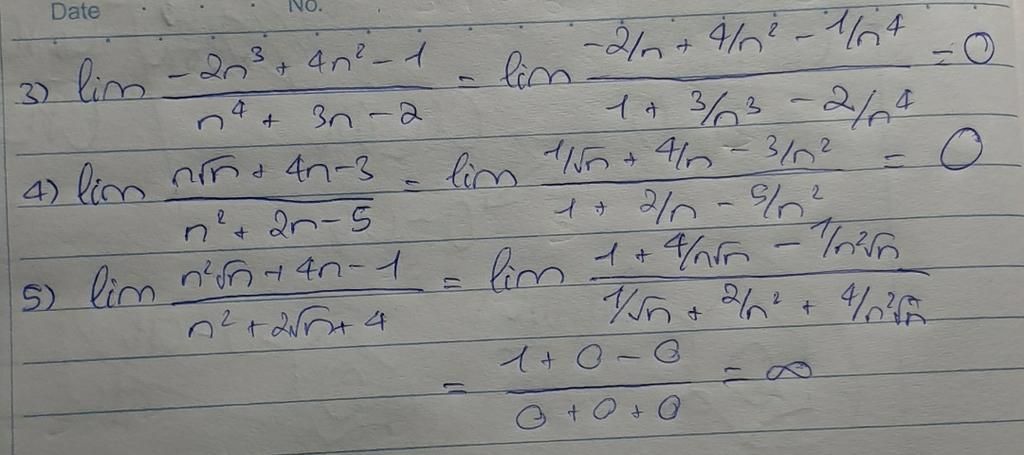 Date No.
3) lim (-2n³ + 4n² - 1)/(n⁴ + 3n - 2) = lim (-2/n + 4/n² - 1/n⁴)/(1 + 3/n³ - 2/n⁴) = 0
4) lim (n√n + 4n - 3)/(n² + 2n - 5) = lim (1/√n + 4/n - 3/n²)/(1 + 2/n - 5/n²) = 0
5) lim (n²√n + 4n - 1)/(n² + 2√n + 4) = lim (1 + 4/n√n - 1/n²√n)/(1/√n + 2/n² + 4/n²√n)
= (1 + 0 - 0)/(0 + 0 + 0) = ∞